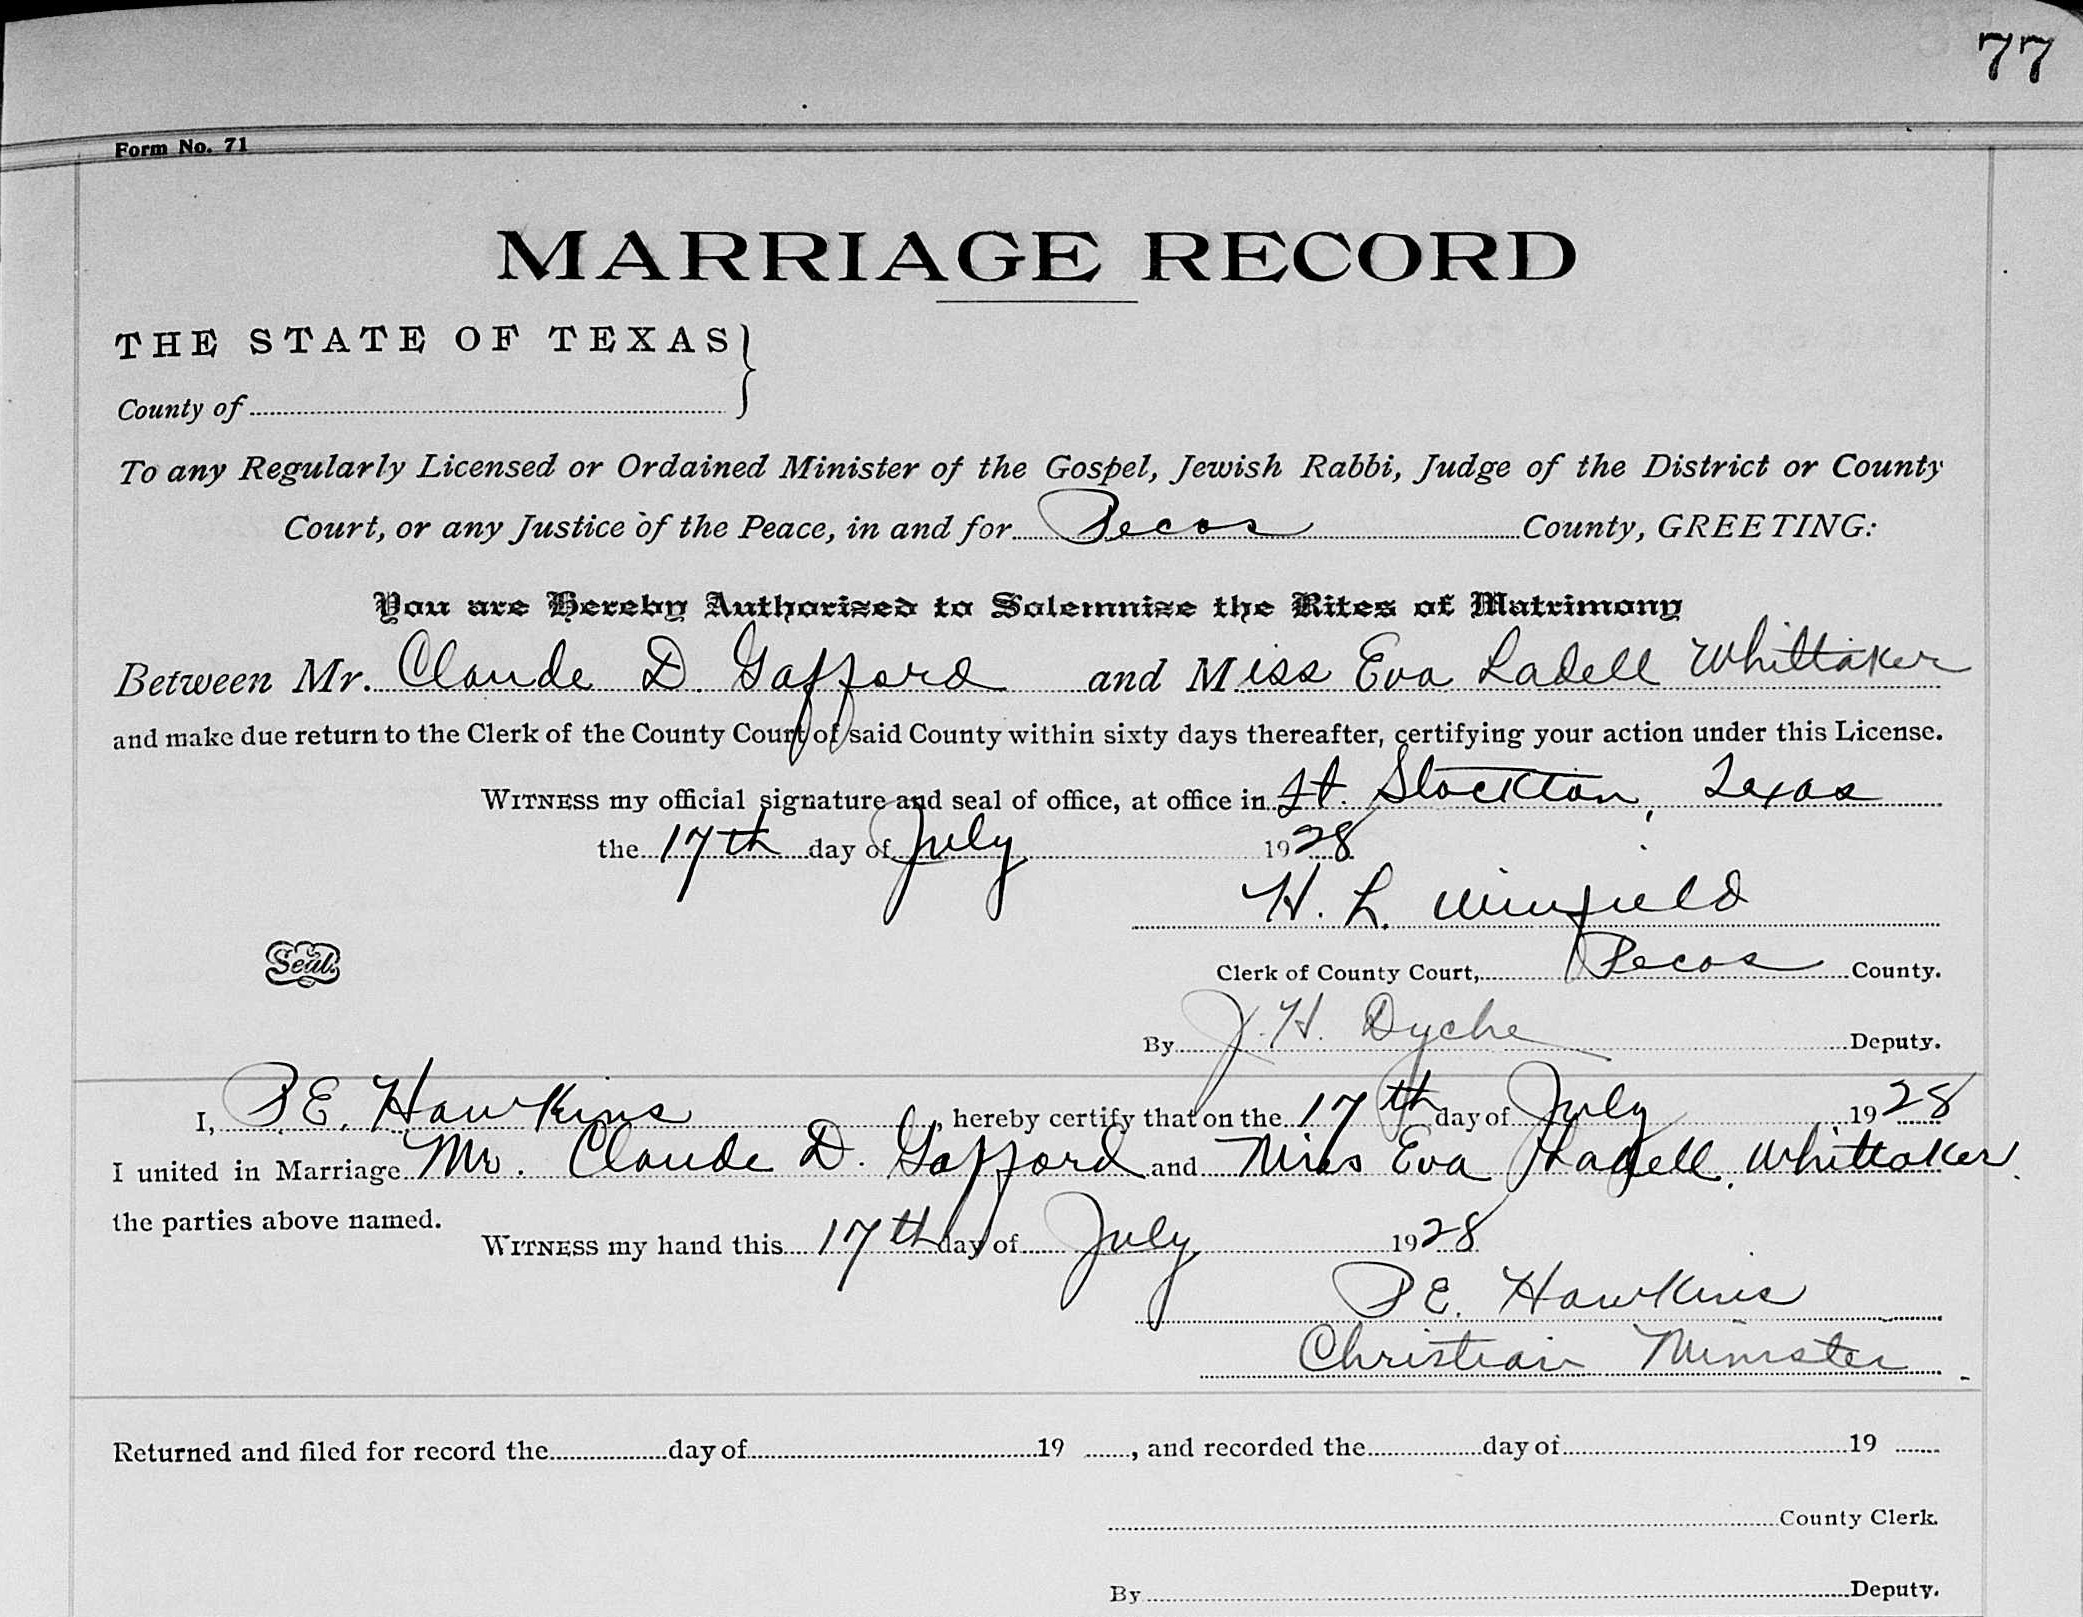 77
Form No. 71
MARRIAGE RECORD
THE STATE OF TEXAS
County of
To any Regularly Licensed or Ordained Minister of the Gospel, Jewish Rabbi, Judge of the District or County
Court, or any Justice of the Peace, in and for Pecos County, GREETING:
You are Hereby Authorized to Solemnize the Rites of Matrimony
Between Mr. Claude D. Gafford and Miss Eva Ladell Whittaker
and make due return to the Clerk of the County Court of said County within sixty days thereafter, certifying your action under this License.
WITNESS my official signature and seal of office, at office in Ft. Stockton, Texas
the 17th day of July 1928
H. L. Winfield
Seal.
Clerk of County Court, Pecos County.
By J. H. Dyche Deputy.
I, P.E. Hawkins, hereby certify that on the 17th day of July 1928
I united in Marriage Mr. Claude D. Gafford and Miss Eva Ladell Whittaker.
the parties above named.
WITNESS my hand this 17th day of July 1928
P.E. Hawkins
Christian Minister
Returned and filed for record the day of 19 , and recorded the day of 19
County Clerk.
By Deputy.